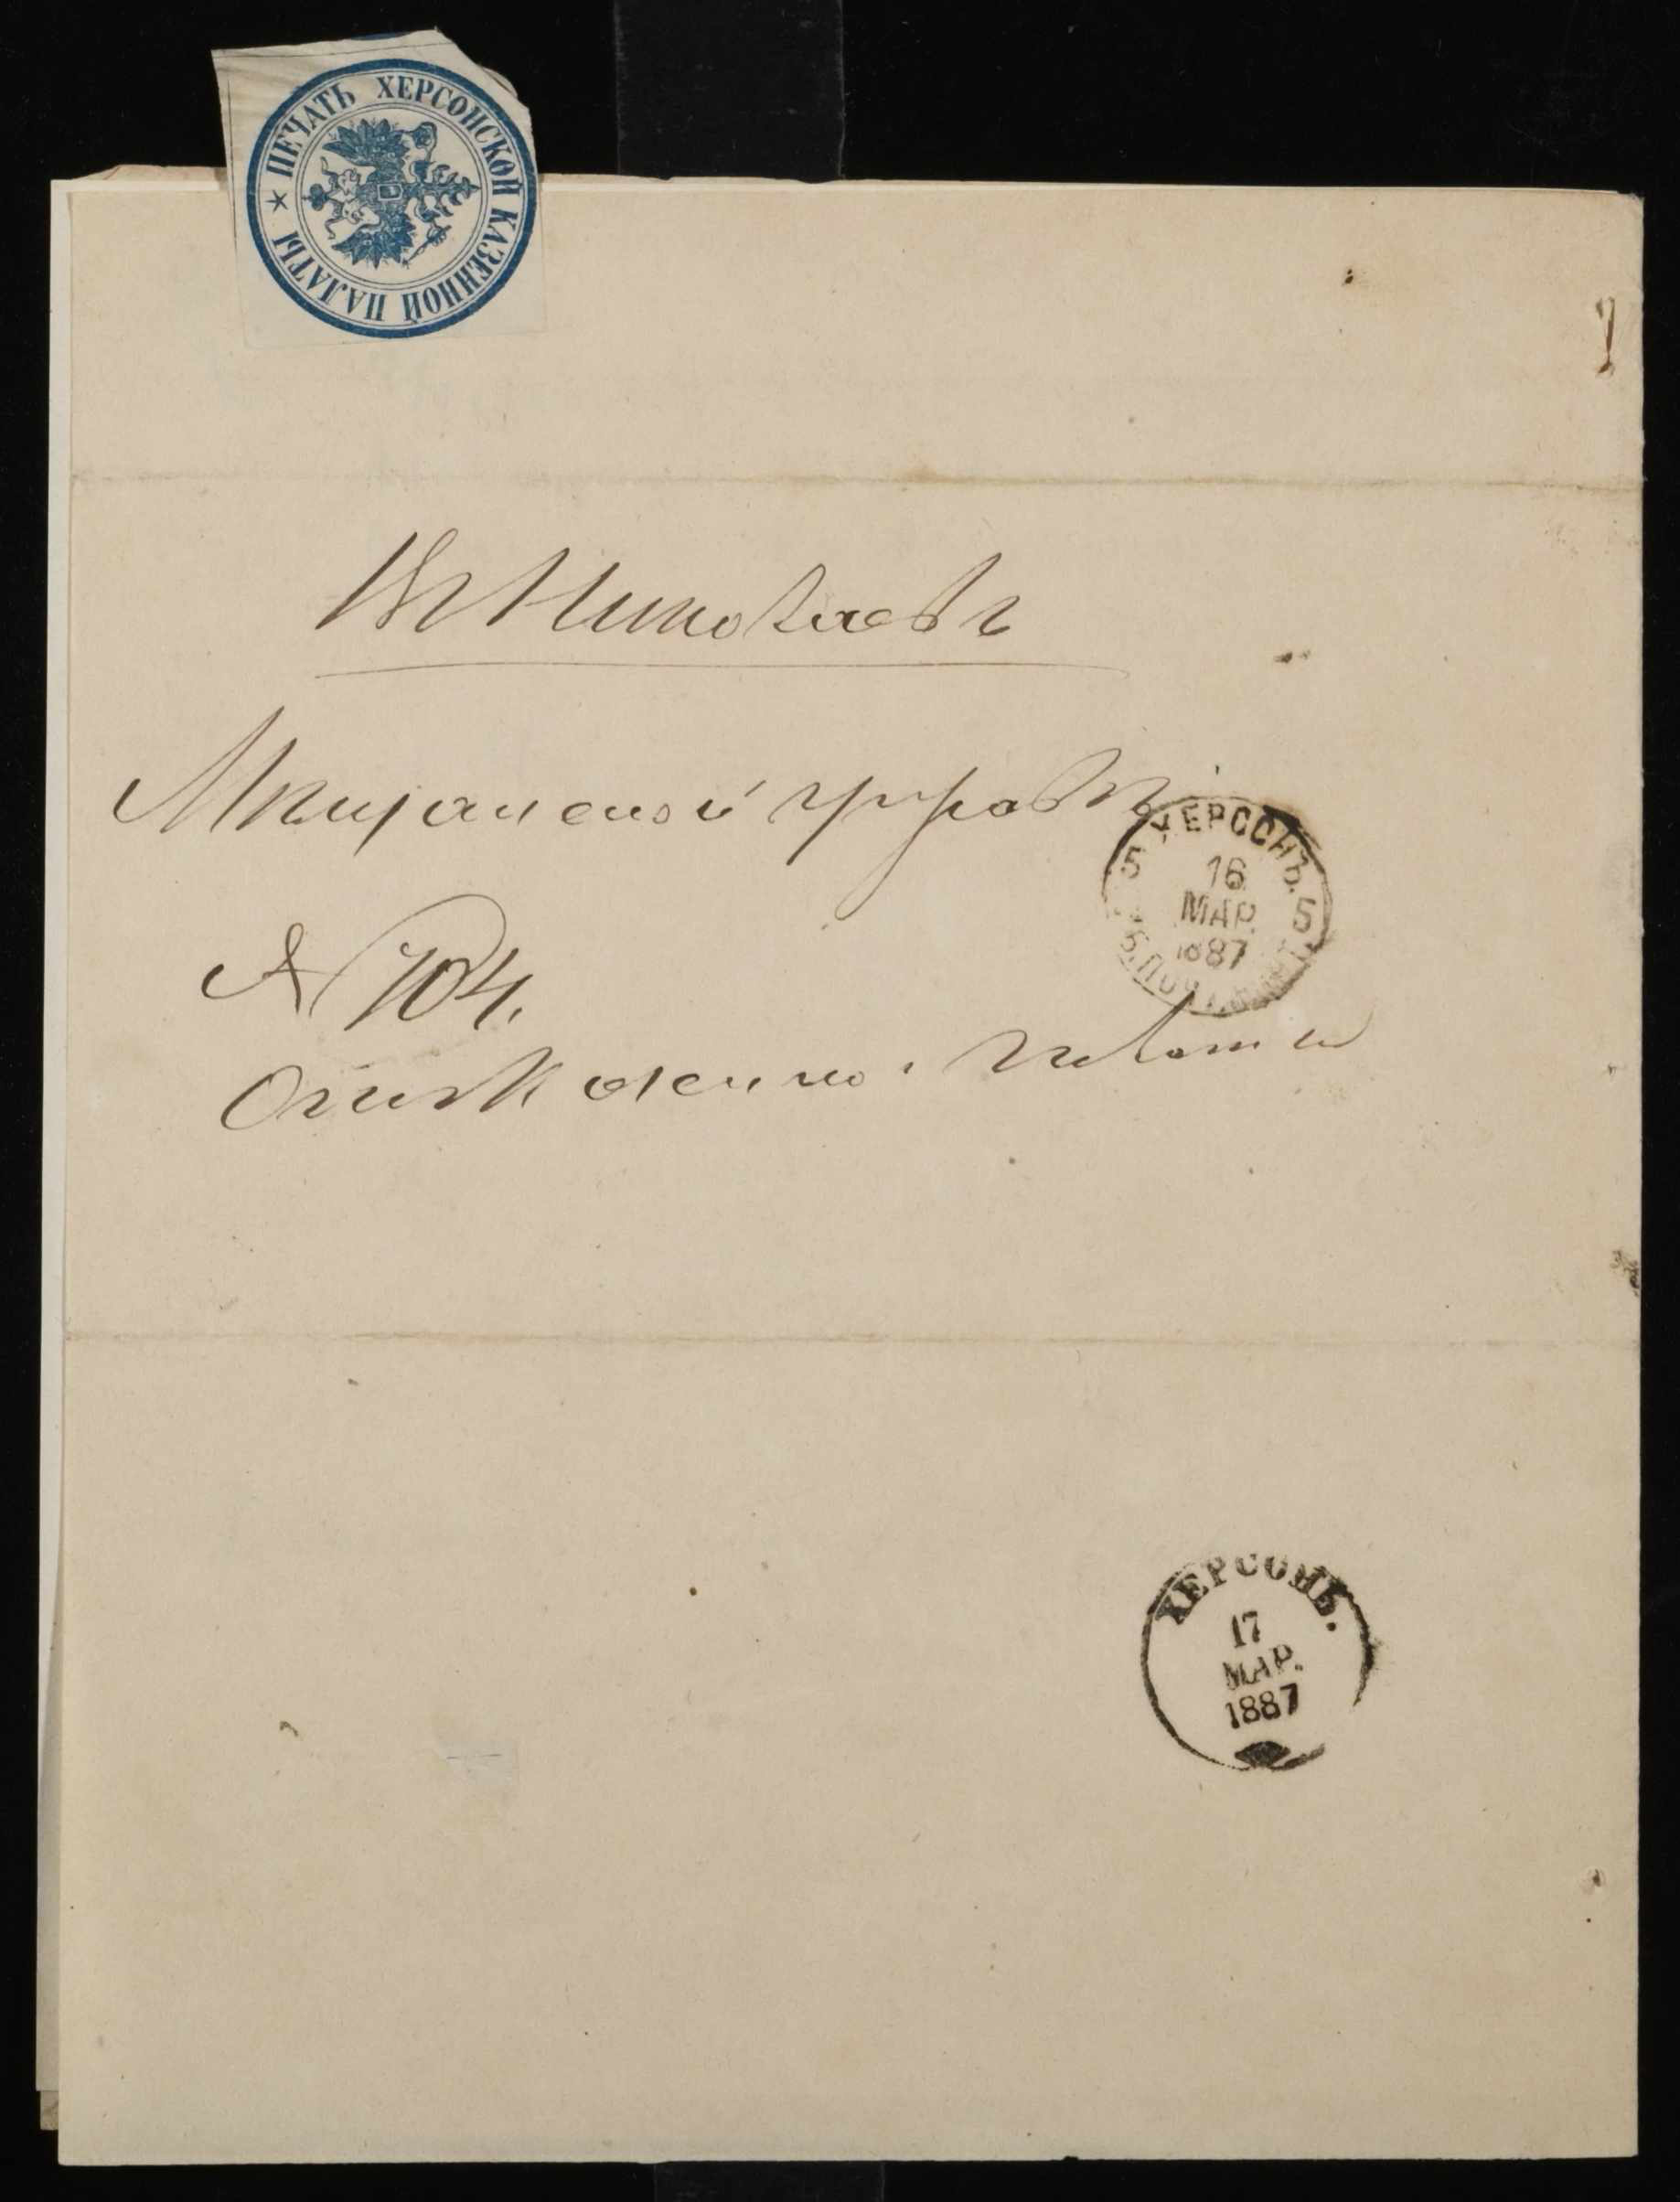 ПЕЧАТЬ ХЕРСОНСКОЙ КАЗЕННОЙ ПАЛАТЫ *
Въ Николаевъ
Мѣщанской управѣ
ХЕРСОНЪ.
5 16 5
МАР.
1887
№ 704.
палаты
ХЕРСОНЪ.
17
МАР.
1887